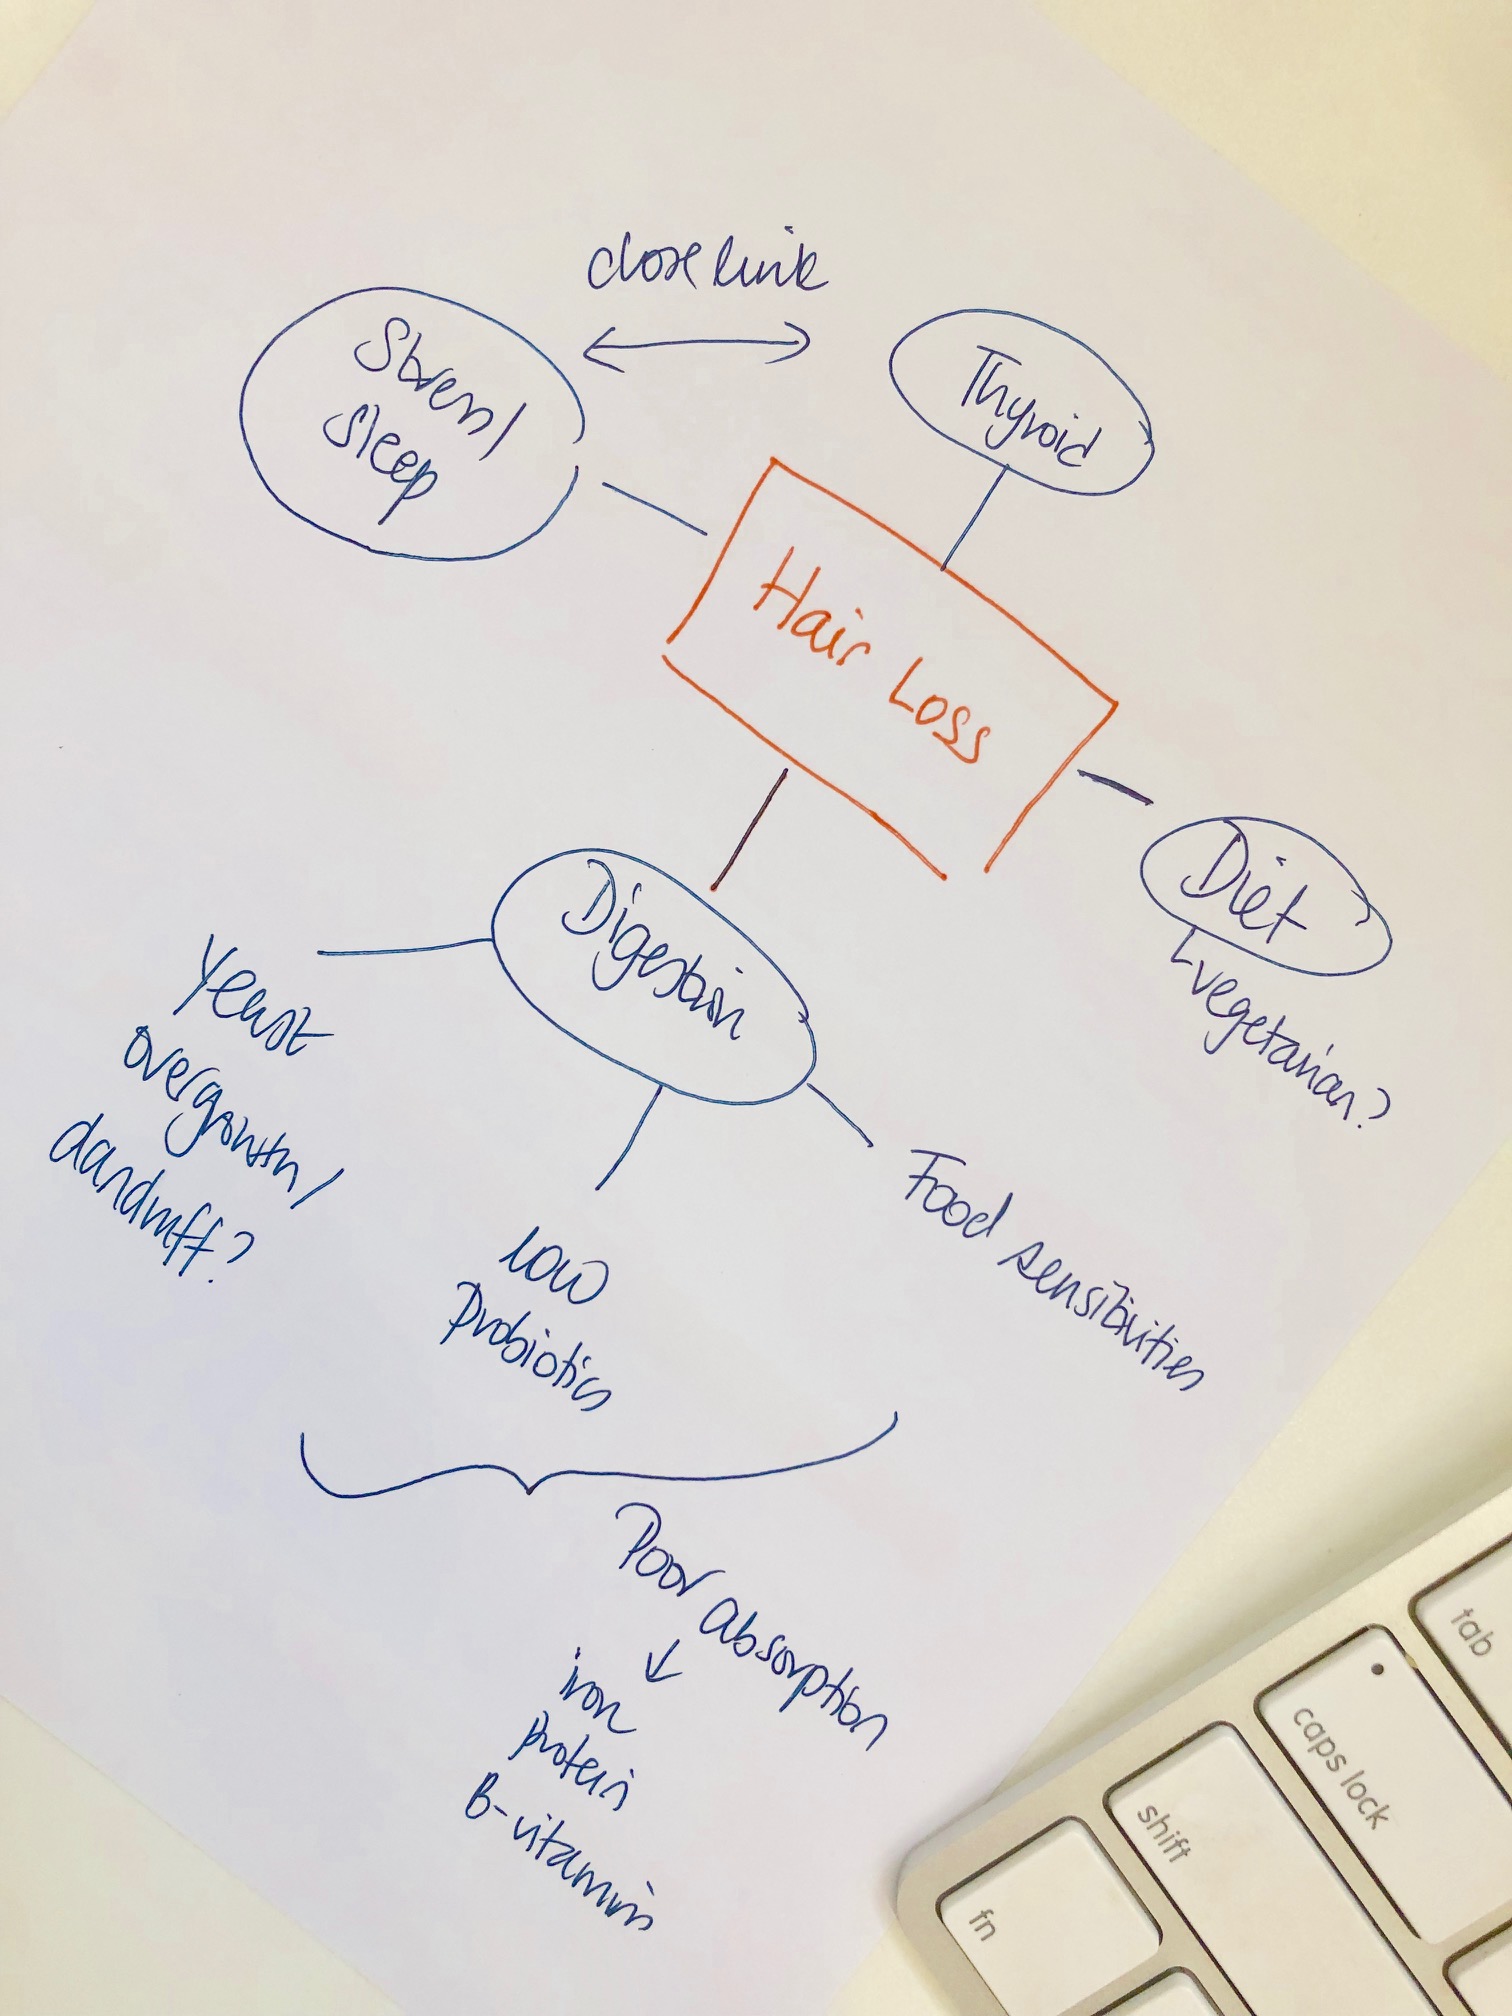 close link
Stress/
Sleep
Thyroid
Hair Loss
Diet
vegetarian?
Digestion
Yeast
overgrowth/
dandruff?
low
Probiotics
Food sensitivities
Poor absorption
iron
protein
B-vitamins
tab
caps lock
shift
fn